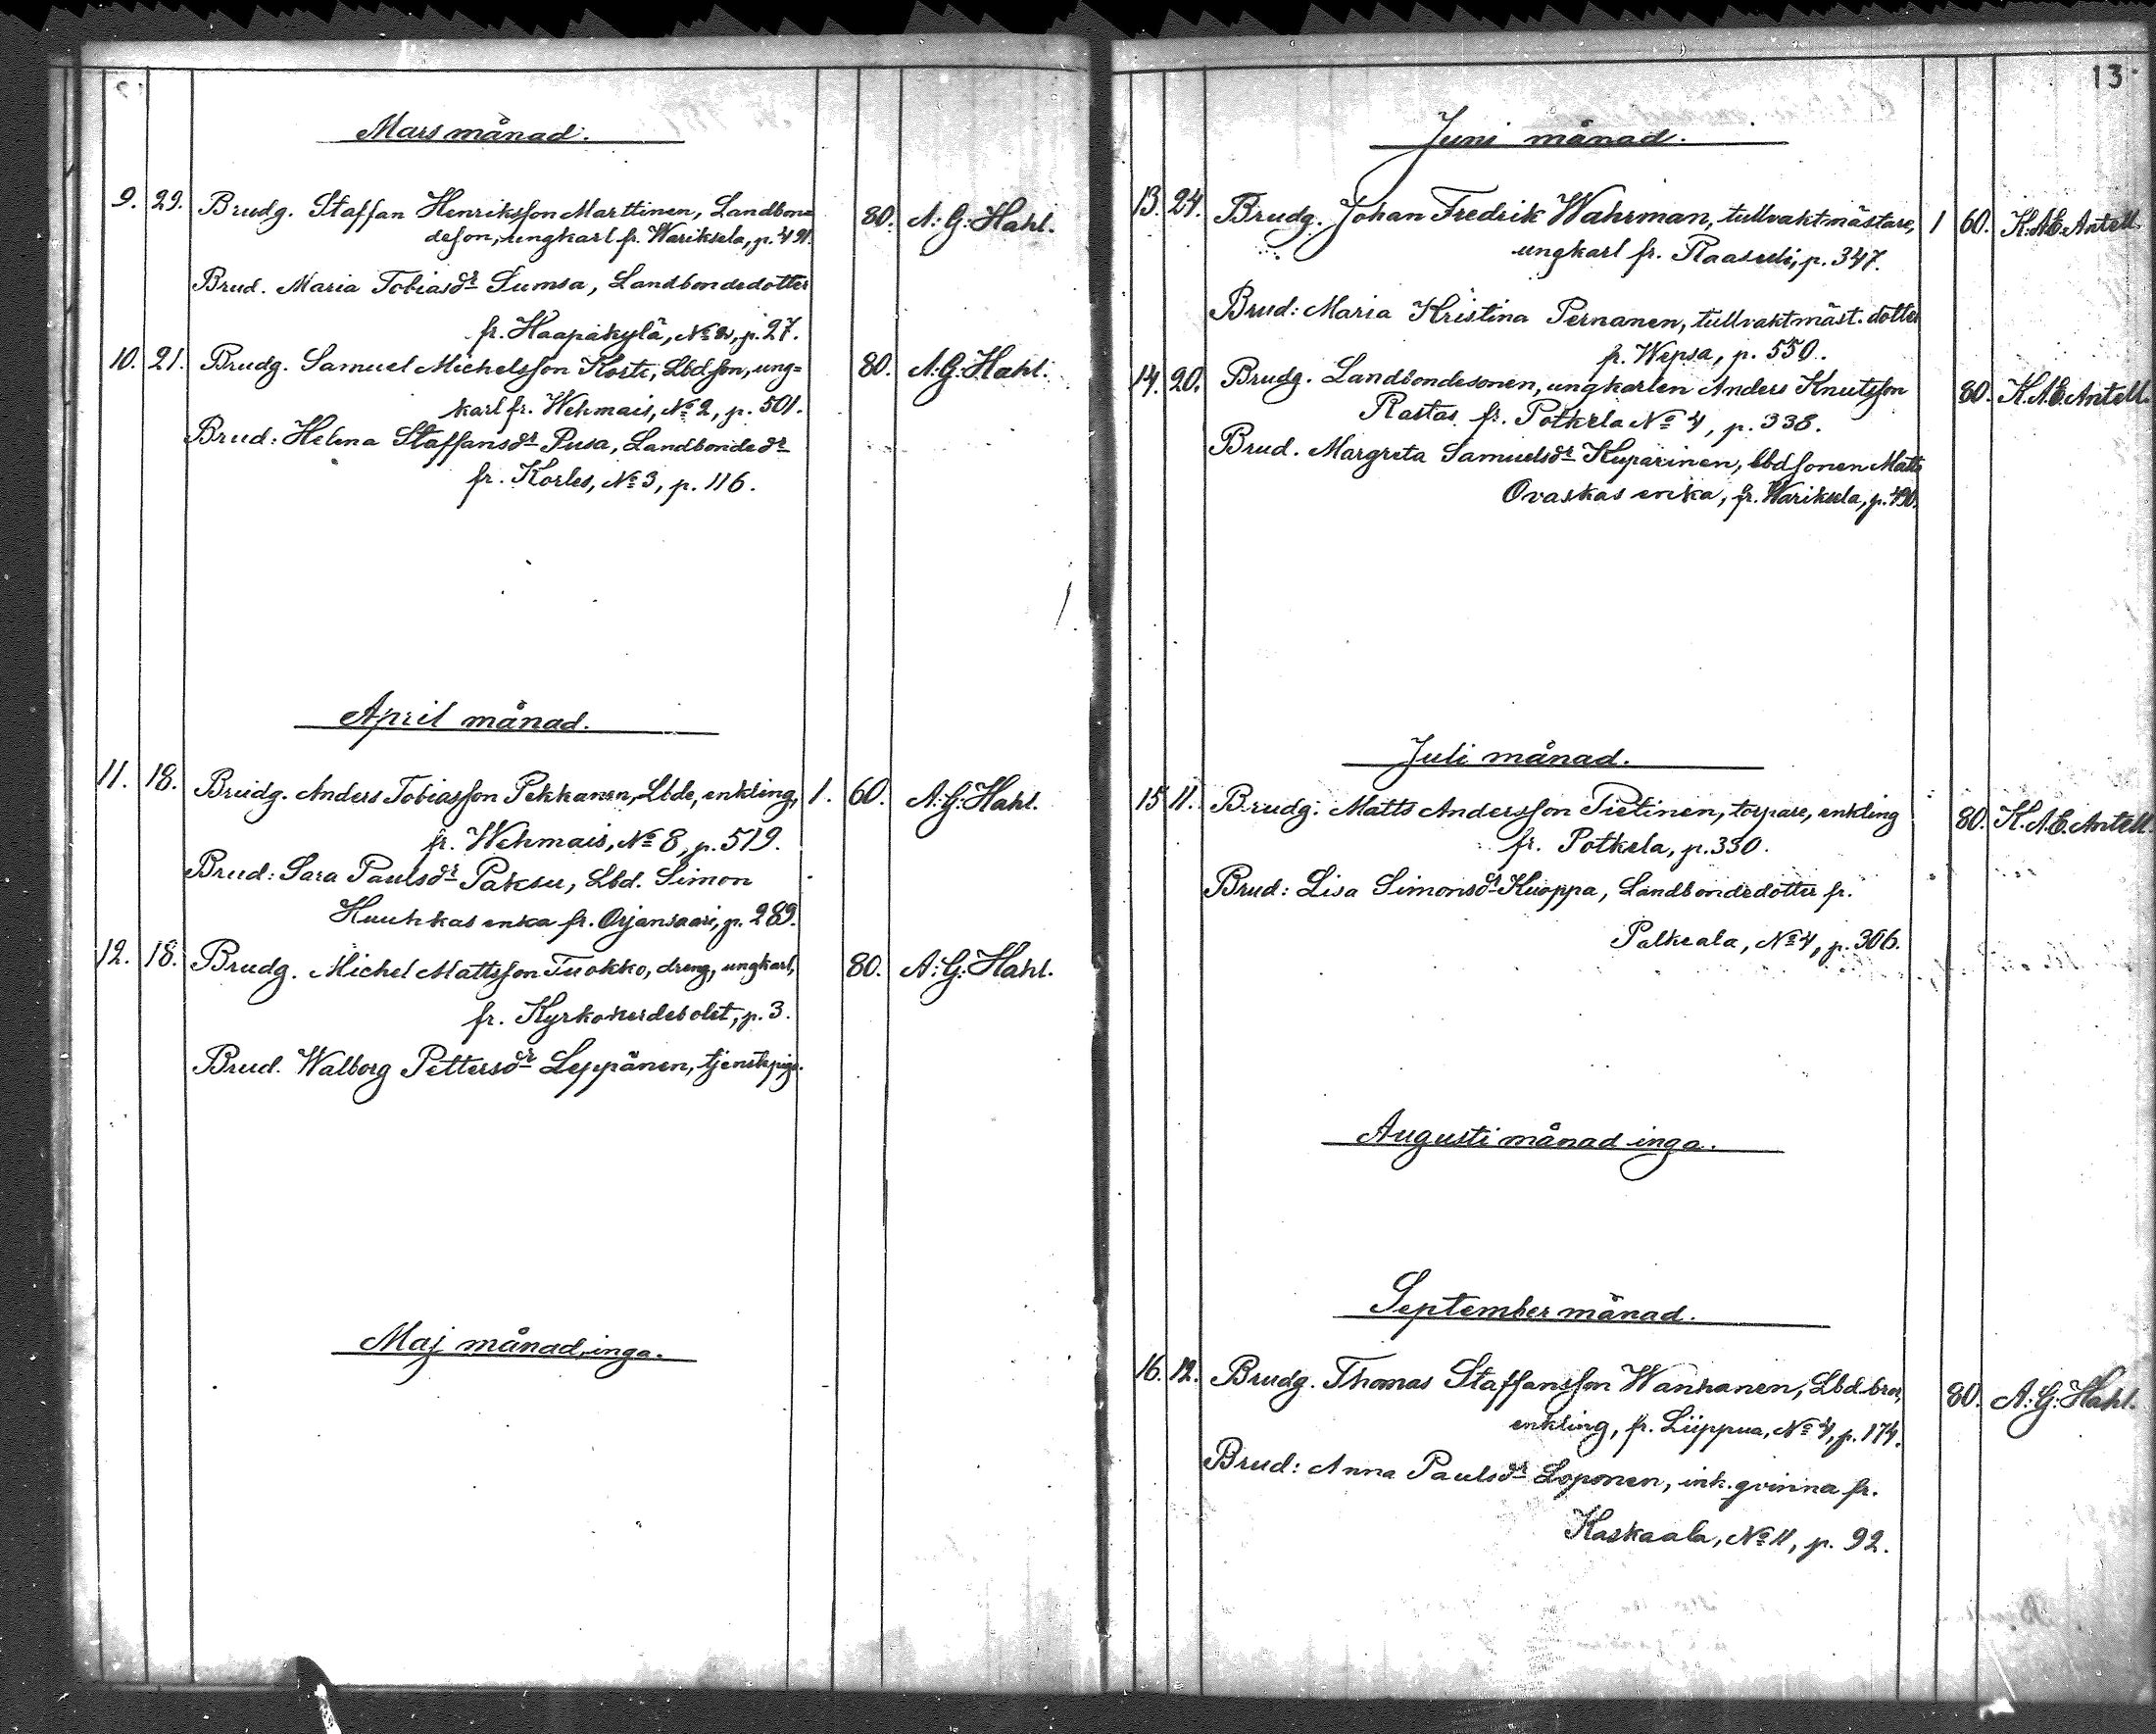 Mars månad.
9. 29. Brudg. Staffan Henriksson Marttinen, Landbon= 80. A: G: Hahl.
deson, ungkarl fr. Wariksela, p. 491.
Brud. Maria Tobiasdr Sumsa, Landbondedotter
fr. Haapakylä, No 2, p. 27.
10. 21. Brudg. Samuel Michelsson Korte, Lbdson, ung= 80. A: G: Hahl.
karl fr. Wehmais, No 2, p. 501.
Brud: Helena Staffansdr Pusa, Landbondedr
fr. Korles, No 3, p. 116.
April månad.
11. 18. Brudg. Anders Tobiasson Pekkanen, Lbde, enkling, 1. 60. A: G: Hahl.
fr. Wehmais, No 8, p. 519.
Brud: Sara Paulsdr Paksu, Lbd. Simon
Huuhkas enka fr. Orjansaari, p. 289.
12. 18. Brudg. Michel Mattsson Tuokko, dreng, ungkarl, 80. A: G: Hahl.
fr. Kyrkoherdebolet, p. 3.
Brud. Walborg Pettersdr Leppänen, tjenstepiga.
Maj månad, inga.
13.
Juni månad.
13. 24. Brudg. Johan Fredrik Wahrman, tullvaktmästare, 1 60. K. A E. Antell.
ungkarl fr. Raasuli, p. 347.
Brud: Maria Kristina Pernanen, tullvaktmäst. dotter
fr. Wepsa, p. 550.
14. 20. Brudg. Landbondesonen, ungkarlen Anders Knutsson 80. K. A E. Antell.
Rastas fr. Potkela No 4, p. 338.
Brud. Margreta Samuelsdr Kuparinen, lbdsonen Matts
Ovaskas enka, fr. Warikselä, p. 490.
Juli månad.
15 11. Brudg: Matts Andersson Pietinen, torpare, enkling 80. K. A. E. Antell.
fr. Potkela, p. 330.
Brud: Lisa Simonsdr Kuoppa, Landbondedotter fr.
Palkeala, No 4, p. 306.
Augusti månad inga.
September månad.
16. 12. Brudg. Thomas Staffansson Wanhanen, Lbd. bror, 80. A: G: Hahl.
enkling, fr. Liippua, No 4, p. 174.
Brud: Anna Paulsdr Loponen, ink. qvinna fr.
Kaskaala, No 11, p. 92.